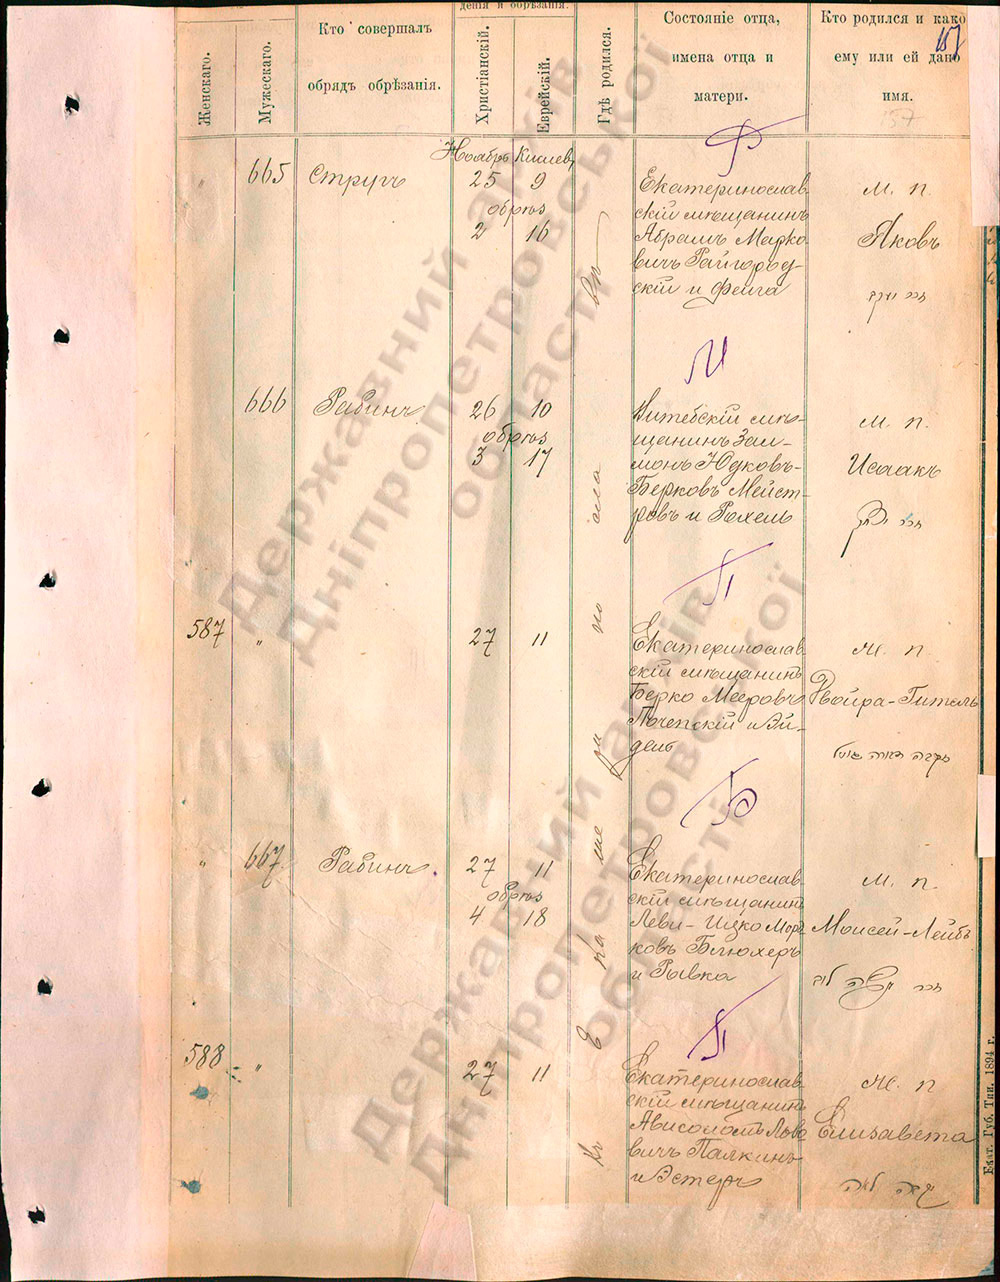 дения и обрѣзанія.
Женскаго.
Мужескаго.
Кто совершалъ
обрядъ обрѣзанія.
Христіанскій.
Еврейскій.
Гдѣ родился.
Состояніе отца,
имена отца и
матери.
Кто родился и како
ему или ей дано
имя.
157
157
Ноябрь Кислев
Ф
"
665
Стругъ
25
9
обрѣз
2
16
Екатеринослав
скій мѣщанинъ
Абрамъ Марко
вичъ Райгород
скій и Фейга
м. п.
Яковъ
М
666
Рабинъ
26
10
обрѣз
3
17
Витебскій мѣ-
щанинъ Зал-
монъ Юдковъ-
Берковъ Мейст-
ровъ и Рохель
м. п.
Исаакъ
П
587
"
27
11
Екатеринослав
скій мѣщанинъ
Берко Мееровъ
Почепскій и Эй-
дель
ж. п
Двойра-Гитель
Б
"
667
Рабинъ
27
11
обрѣз
4
18
Екатеринослав
скій мѣщанинъ
Леви-Ицко Мор
ковъ Блюхеръ
и Рывка
м. п.
Моисей-Лейбъ
П
588
"
27
11
Екатеринослав
скій мѣщанинъ
Ависоломъ Льво
вичъ Палкинъ
и Эстеръ
ж. п
Елизавета
Екат. Губ. Тип. 1894 г.
Державний архів
Дніпропетровської
області
Державний архів
Дніпропетровської
області